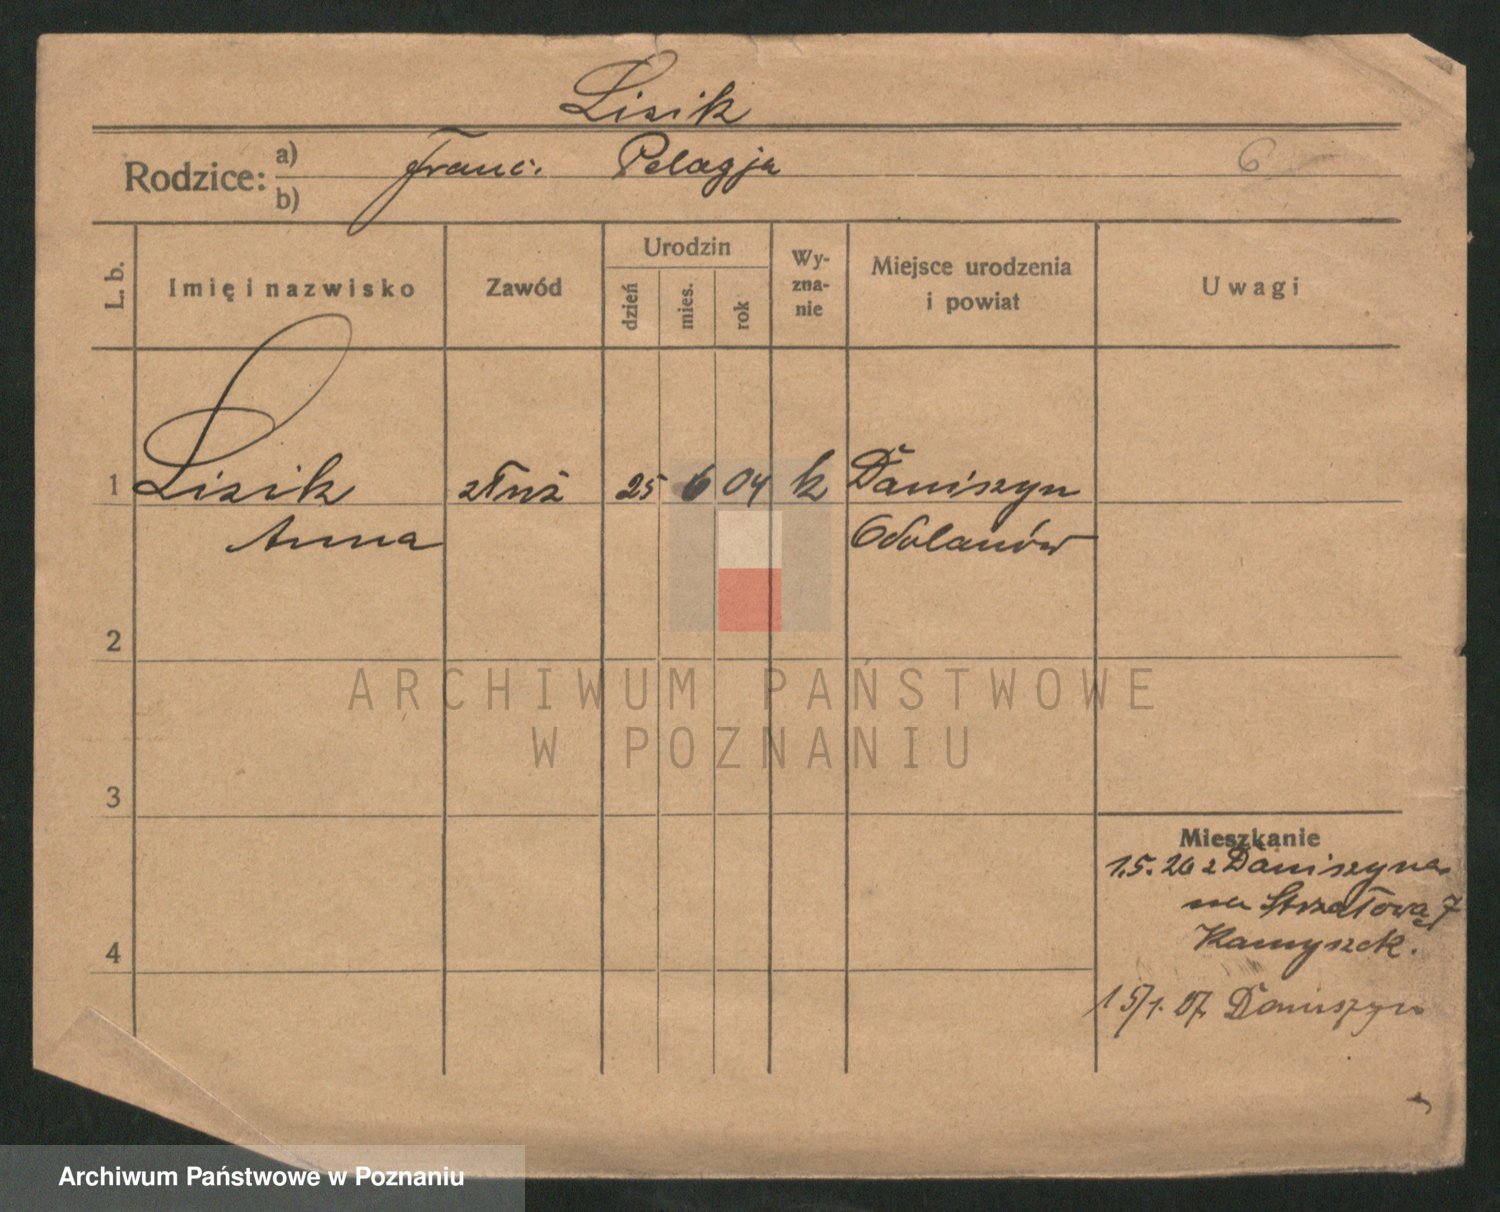 Lisik
Rodzice: a) Franc. Pelagja
b)
6
L. b.
Imię i nazwisko
Zawód
Urodzin
dzień
mies.
rok
Wy-
zna-
nie
Miejsce urodzenia
i powiat
Uwagi
1 Lisik służ 25 6 04 k Daniszyn
Anna Odolanów
2
3
4
Mieszkanie
1.5.26 z Daniszyna
na Strzałową 7
Kamyszek.
15/1. 27. Daniszyn
ARCHIWUM PAŃSTWOWE
W POZNANIU
Archiwum Państwowe w Poznaniu